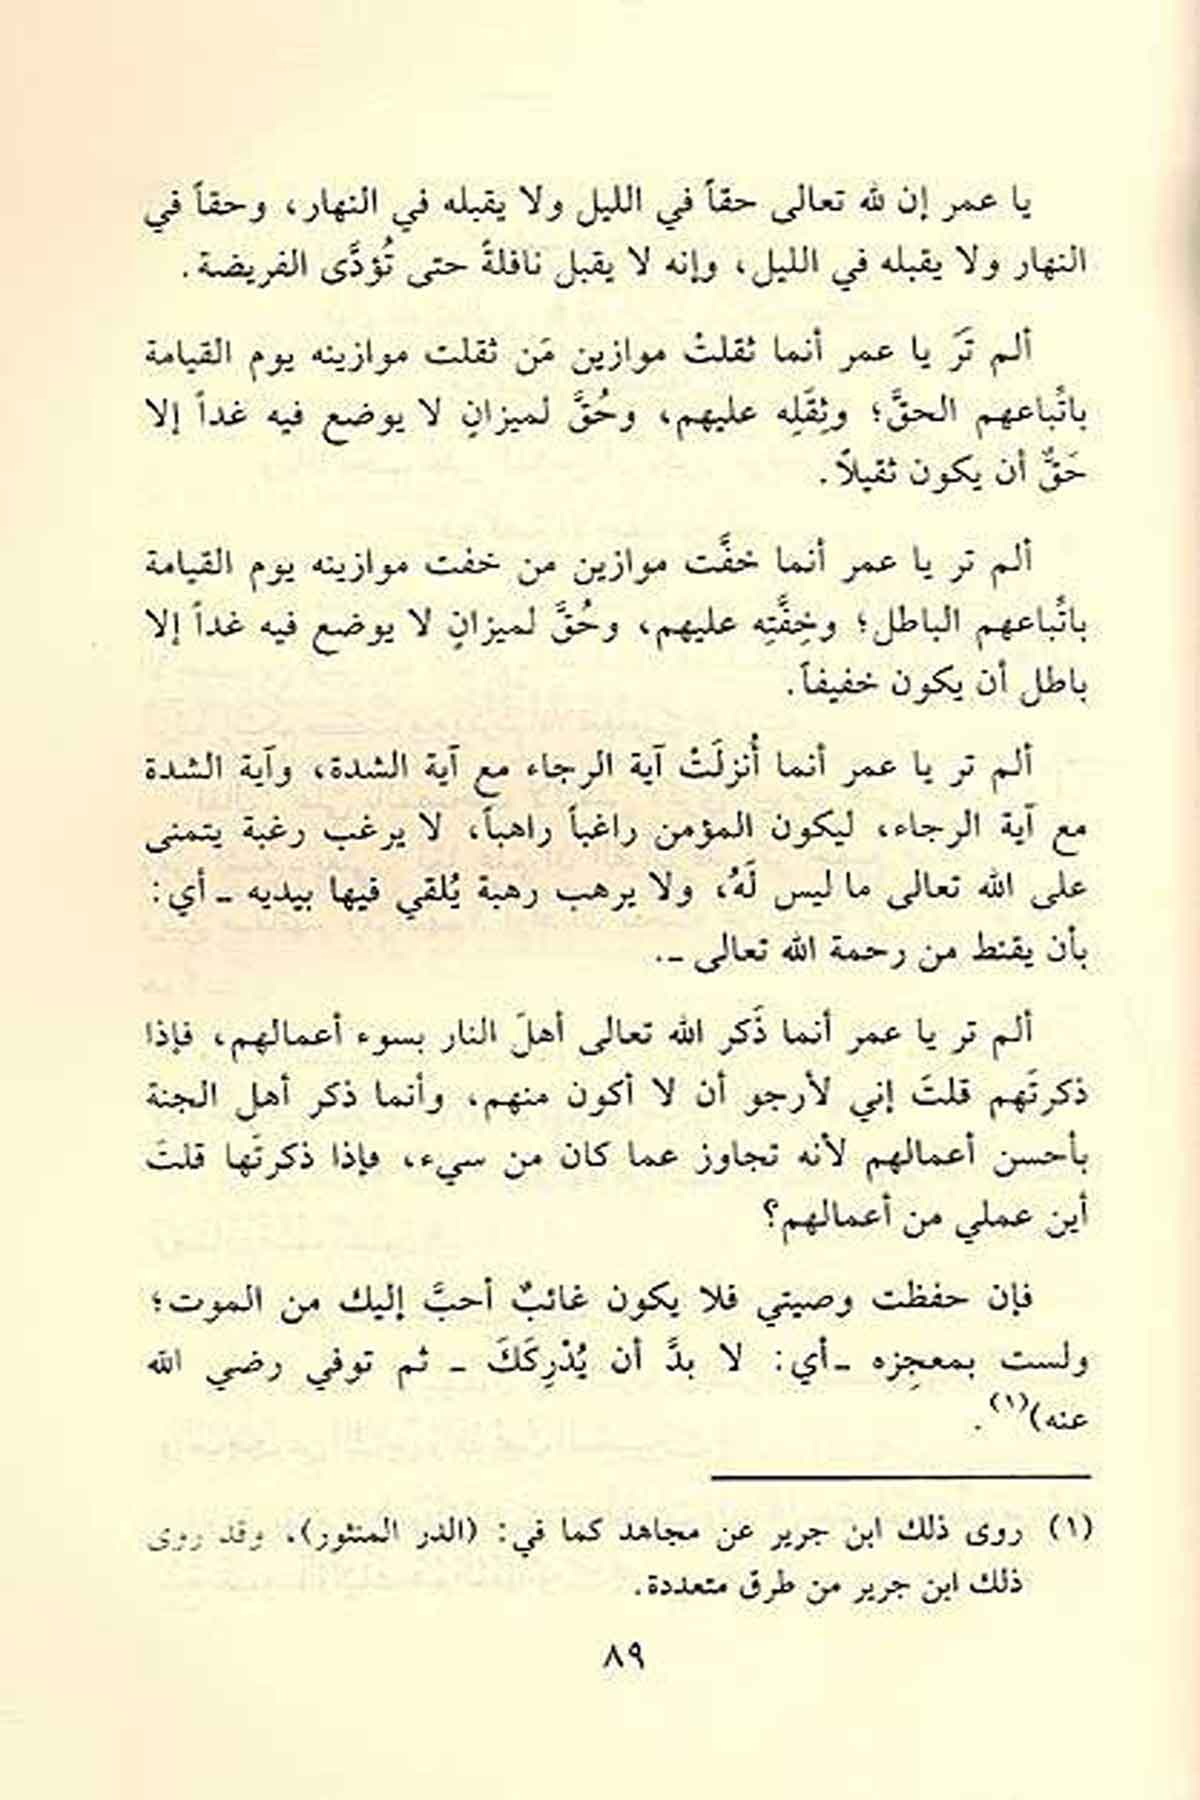 يا عمر إن لله تعالى حقاً في الليل ولا يقبله في النهار، وحقاً في
النهار ولا يقبله في الليل، وإنه لا يقبل نافلةً حتى تُؤدَّى الفريضة.
ألم تَرَ يا عمر أنما ثقلتْ موازين مَن ثقلت موازينه يوم القيامة
باتِّباعهم الحقَّ؛ وثِقَلِه عليهم، وحُقَّ لميزانٍ لا يوضع فيه غداً إلا
حَقٌّ أن يكون ثقيلاً.
ألم تر يا عمر أنما خفَّت موازين من خفت موازينه يوم القيامة
باتِّباعهم الباطل؛ وخِفَّتِه عليهم، وحُقَّ لميزانٍ لا يوضع فيه غداً إلا
باطل أن يكون خفيفاً.
ألم تر يا عمر أنما أُنزلَتْ آية الرجاء مع آية الشدة، وآية الشدة
مع آية الرجاء، ليكون المؤمن راغباً راهباً، لا يرغب رغبة يتمنى
على الله تعالى ما ليس لَهُ، ولا يرهب رهبة يُلقي فيها بيديه ـ أي:
بأن يقنط من رحمة الله تعالى ـ.
ألم تر يا عمر أنما ذَكر الله تعالى أهلَ النار بسوء أعمالهم، فإذا
ذكرتَهم قلتَ إني لأرجو أن لا أكون منهم، وأنما ذكر أهل الجنة
بأحسن أعمالهم لأنه تجاوز عما كان من سيء، فإذا ذكرتَها قلتَ
أين عملي من أعمالهم؟
فإن حفظت وصيتي فلا يكون غائبٌ أحبَّ إليك من الموت؛
ولست بمعجِزه ـأي: لا بدَّ أن يُدْرِكَكَ ـ ثم توفي رضي الله
عنه)(١).
(١) روى ذلك ابن جرير عن مجاهد كما في: (الدر المنثور)، وقد روى
ذلك ابن جرير من طرق متعددة.
٨٩